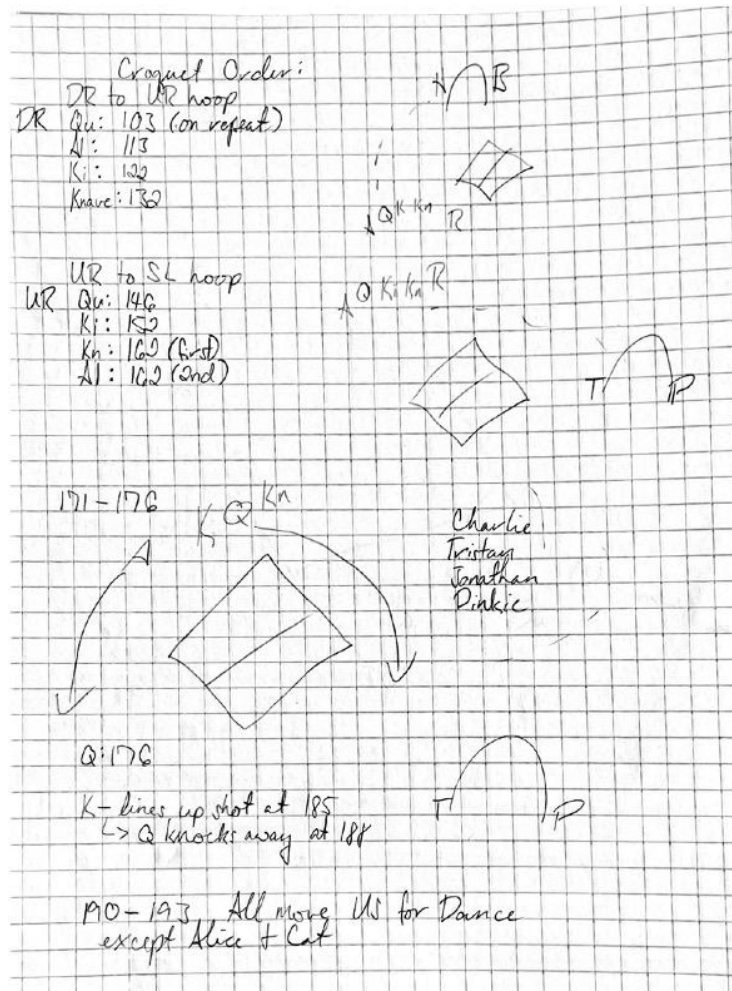 Croquet Order:
DR to UR hoop
DR Qu: 103 (on repeat)
Al: 113
Ki: 122
Knave: 132
H B
A Q K Kn R
UR to SL hoop
UR Qu: 146
Ki: 152
Kn: 162 (first)
Al: 162 (2nd)
A Q Ki Kn R
T P
171-176
A K Q Kn
Charlie
Tristan
Jonathan
Pinkie
Q: 176
K- lines up shot at 185
↳ Q knocks away at 188
T P
190-193 All move US for Dance
except Alice + Cat